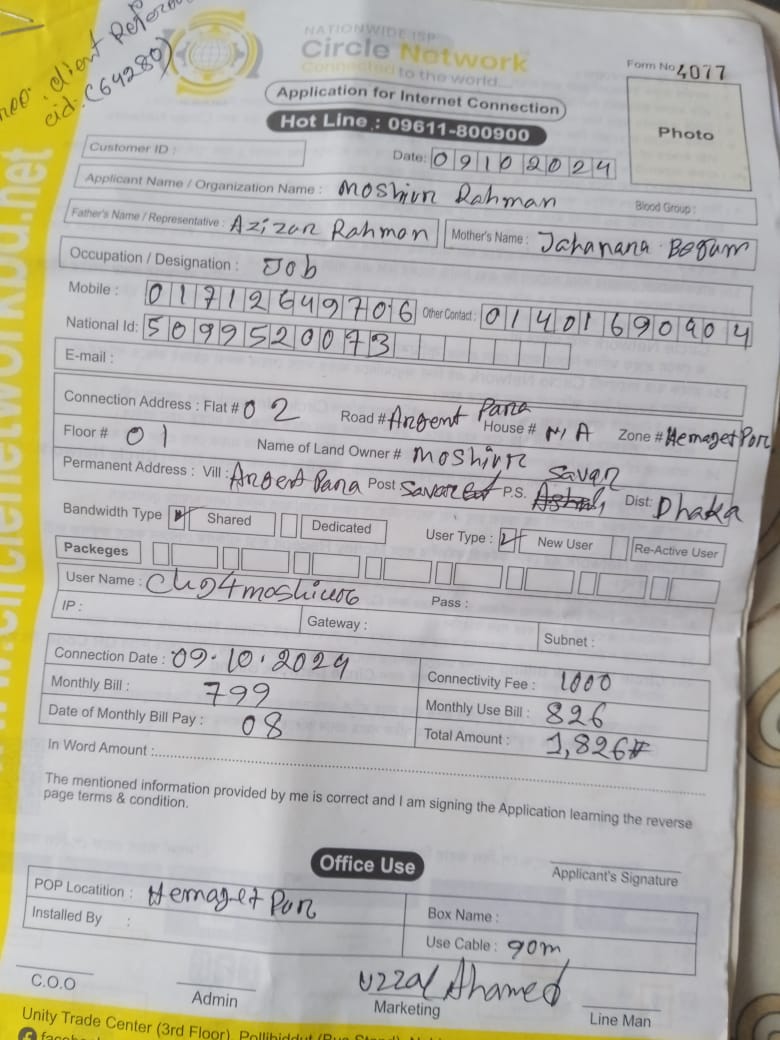 client Refere
cid. (64280)
NATIONWIDE ISP
Circle Network
Connected to the world...
Form No 4077
Application for Internet Connection
Hot Line : 09611-800900
Photo
Customer ID :
Date: 09102024
Applicant Name / Organization Name : Moshiur Rahman
Blood Group :
Father's Name / Representative : Azizar Rahman Mother's Name : Jahanana Begum
Occupation / Designation : Job
Mobile : 01712649706 Other Contact : 01401690904
National Id: 5099520073
E-mail :
Connection Address : Flat # 02 Road # Angent Para House # N/A Zone # Hemayet Pur
Floor # 01 Name of Land Owner # Moshiur
Permanent Address : Vill : Angent Para Post Savar P.S. Savar Dist: Dhaka
Bandwidth Type Shared Dedicated User Type : New User Re-Active User
Packeges
User Name : Pass :
IP : Gateway : Subnet :
Connection Date : 09.10.2024 Connectivity Fee : 1000
Monthly Bill : 799 Monthly Use Bill : 826
Date of Monthly Bill Pay : 08 Total Amount : 1,826#
In Word Amount :
The mentioned information provided by me is correct and I am signing the Application learning the reverse
page terms & condition.
Office Use
Applicant's Signature
POP Locatition : Hemayet Pur Box Name :
Installed By : Use Cable : 90m
C.O.O Admin Uzzal Ahamed Marketing Line Man
Unity Trade Center (3rd Floor),
www.circlenetworkbd.net